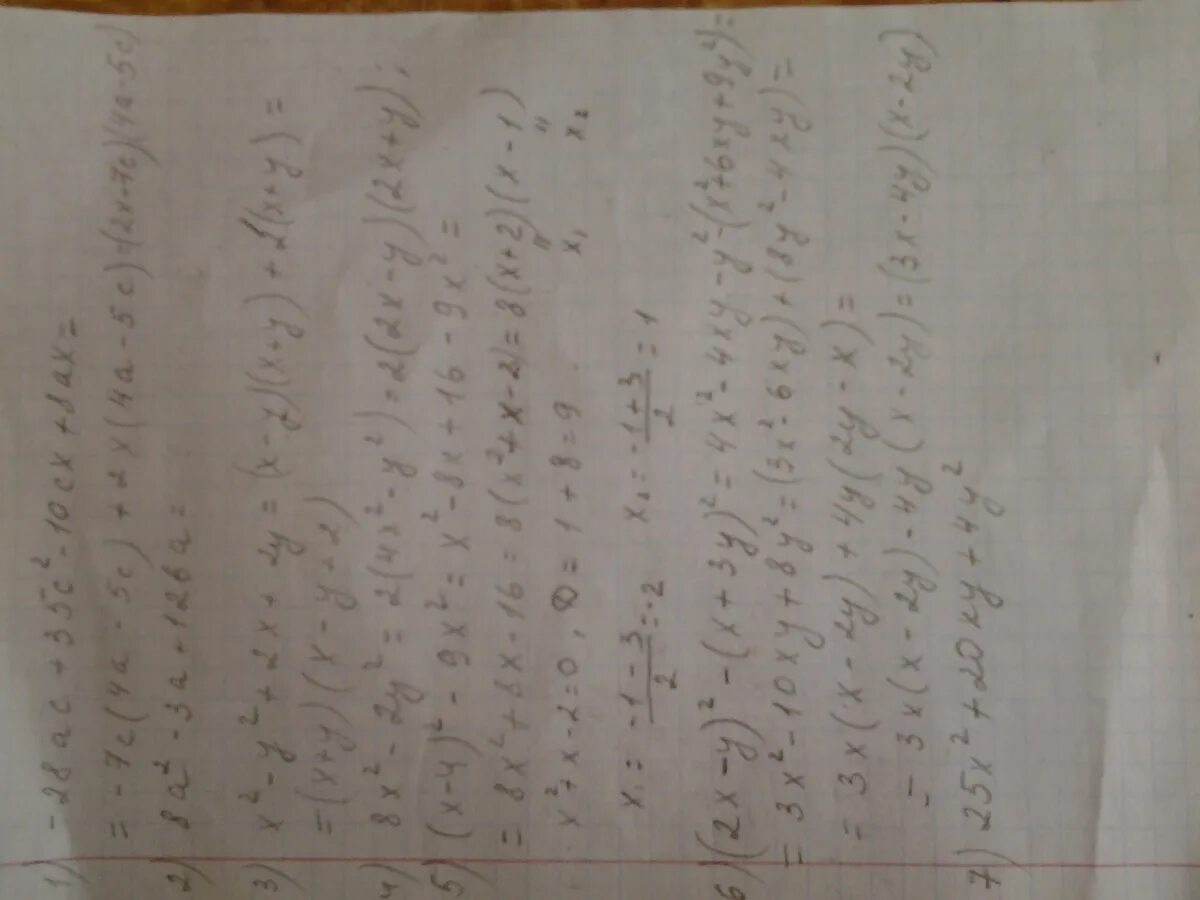 1) -28ac + 35c² - 10cx + 8ax =
= -7c(4a - 5c) + 2x(4a - 5c) = (2x - 7c)(4a - 5c)
2) 8a² - 3a + 12ba =
3) x² - y² + 2x + 2y = (x - y)(x + y) + 2(x + y) =
= (x + y)(x - y + 2)
4) 8x² - 2y² = 2(4x² - y²) = 2(2x - y)(2x + y);
5) (x - 4)² - 9x² = x² - 8x + 16 - 9x² =
= 8x² + 8x - 16 = 8(x² + x - 2) = 8(x + 2)(x - 1)
x² + x - 2 = 0, D = 1 + 8 = 9
x₁ x₂
x₁ = (-1 - 3)/2 = -2 x₂ = (-1 + 3)/2 = 1
6) (2x - y)² - (x + 3y)² = 4x² - 4xy - y² - (x² + 6xy + 9y²) =
= 3x² - 10xy + 8y² = (3x² - 6xy) + (8y² - 4xy) =
= 3x(x - 2y) + 4y(2y - x) =
= 3x(x - 2y) - 4y(x - 2y) = (3x - 4y)(x - 2y)
7) 25x² + 20xy + 4y²